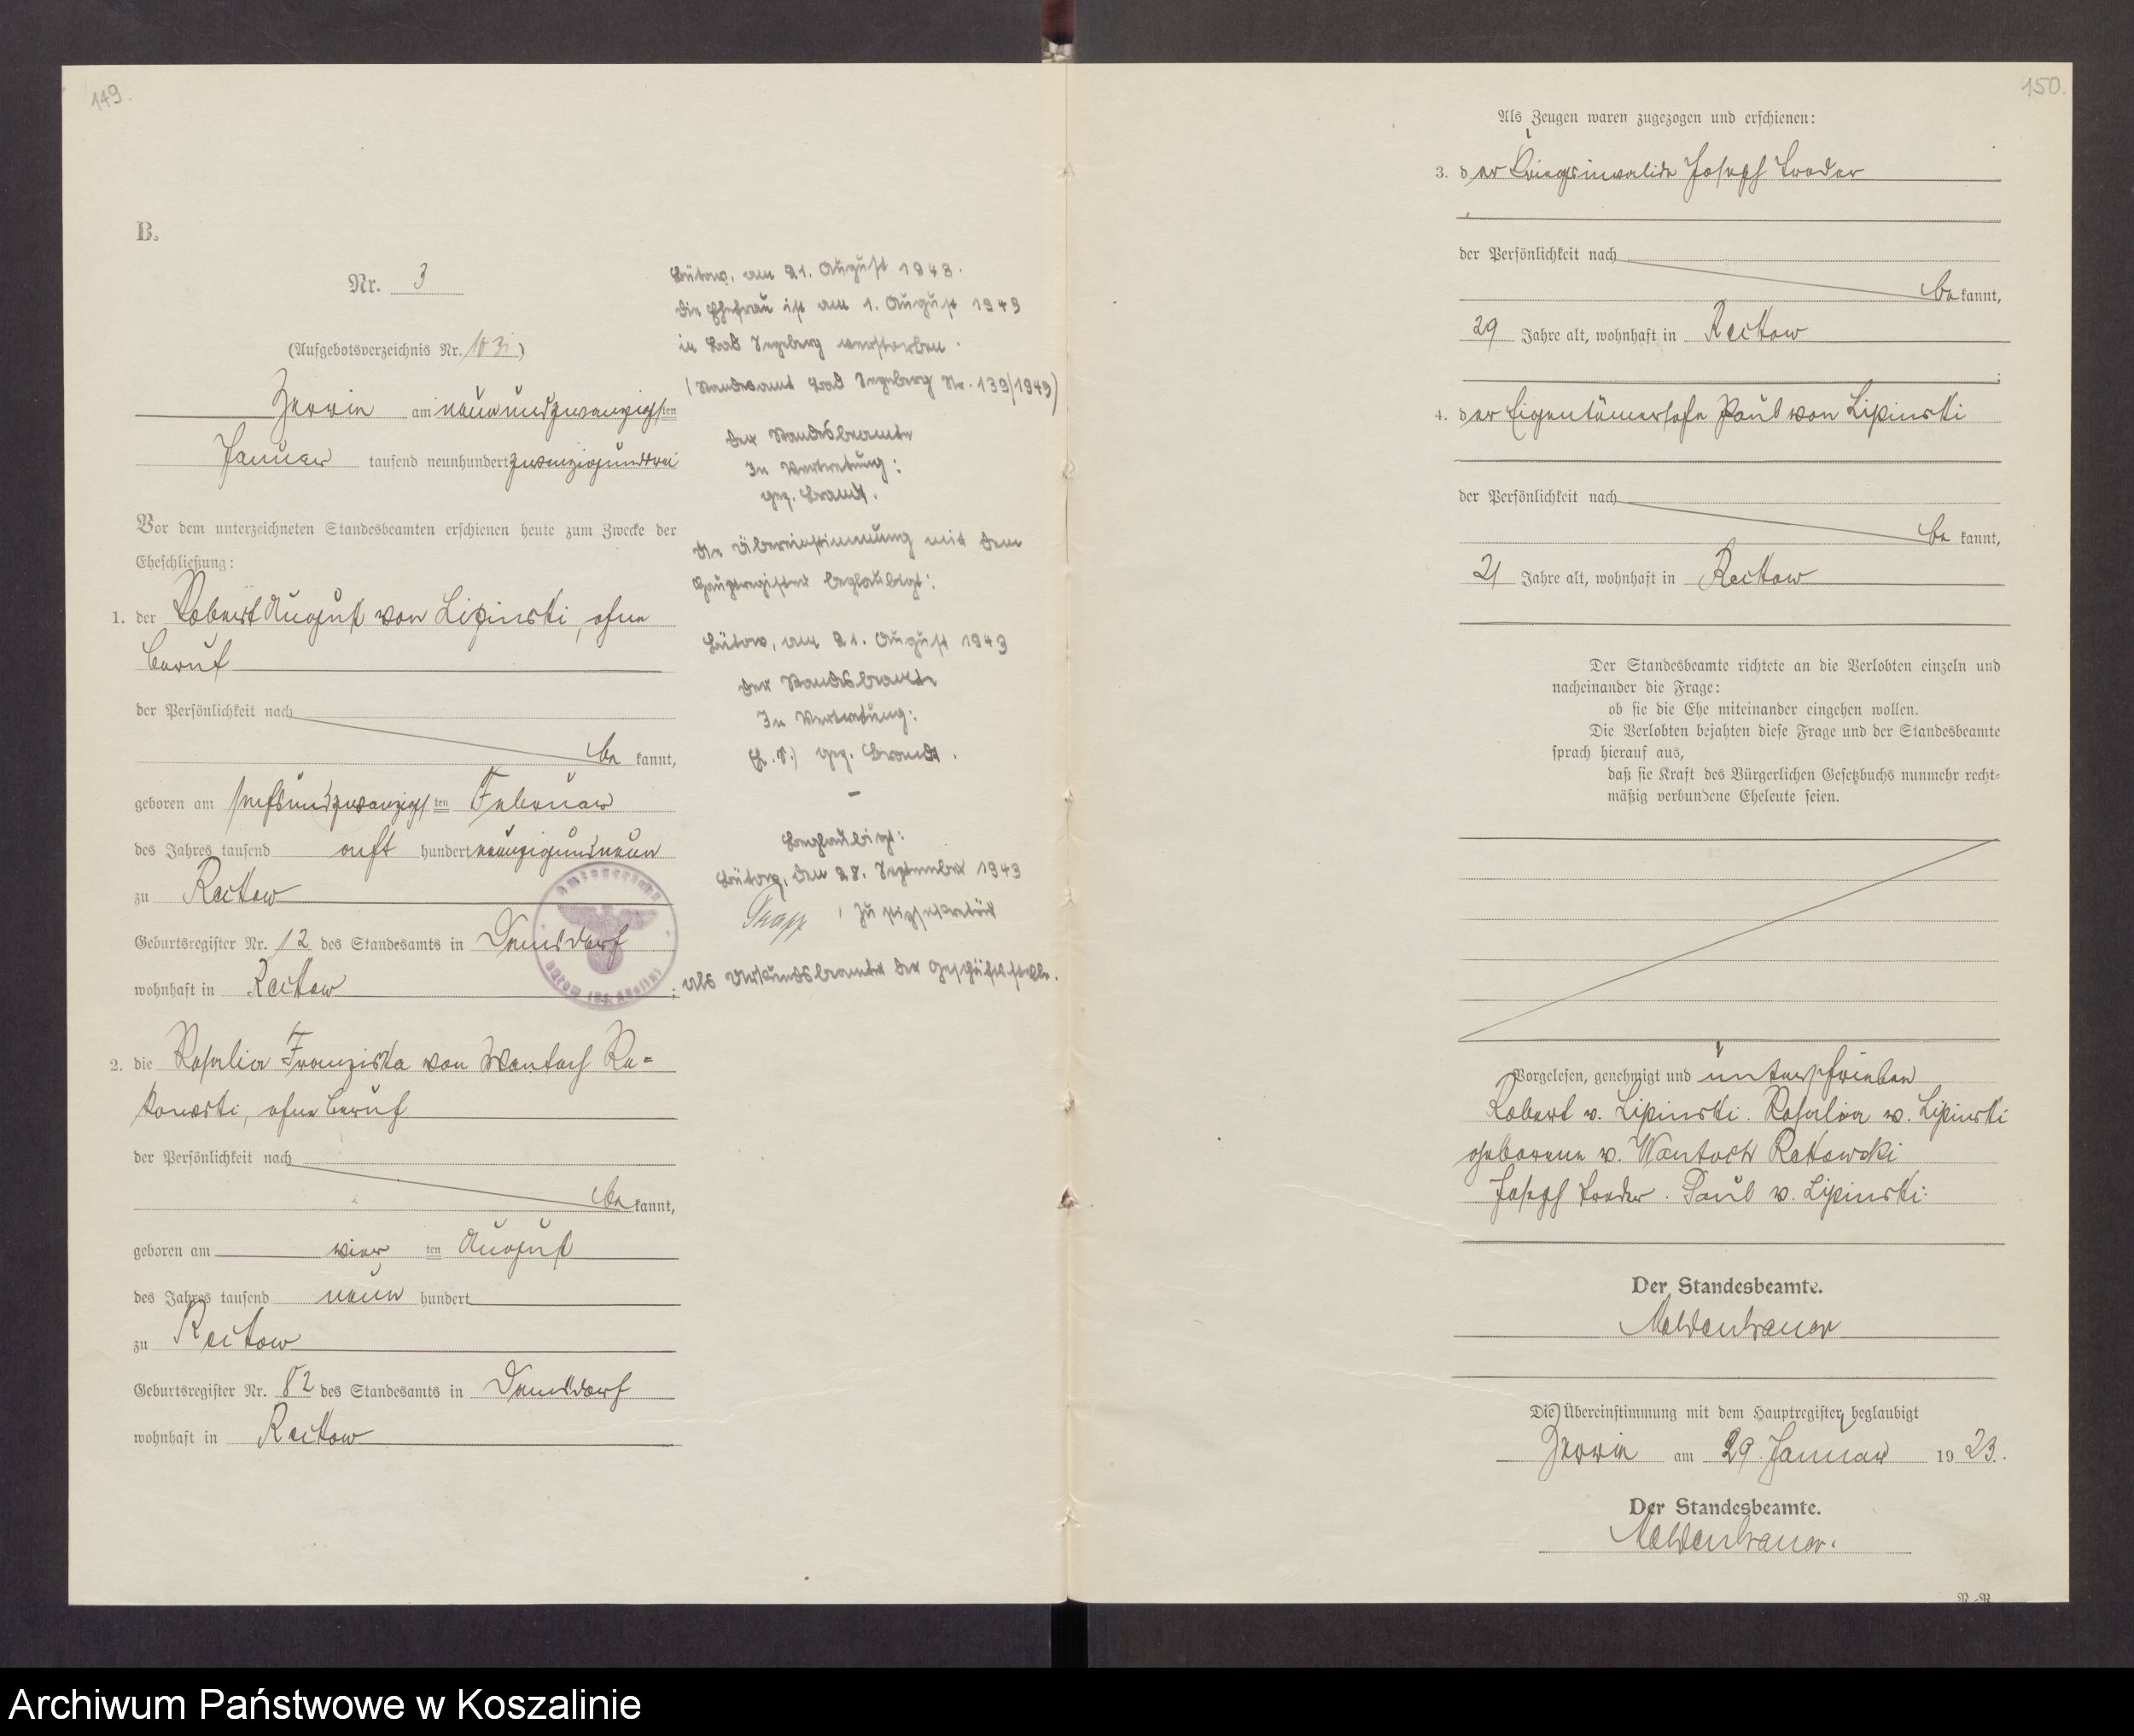 149.
B.
Nr. 3
(Aufgebotsverzeichnis Nr. )
Zerrin am neunundzwanzigsten
Januar tausend neunhundert zwanzigunddrei
Vor dem unterzeichneten Standesbeamten erschienen heute zum Zwecke der
Eheschließung:
1. der Robert August von Lipinski, ohne
Beruf
der Persönlichkeit nach
be kannt,
geboren am sechsundzwanzigsten Februar
des Jahres tausend acht hundert neunzigundneun
zu Reckow
Geburtsregister Nr. 12 des Standesamts in Damsdorf
wohnhaft in Reckow ;
2. die Rosalia Franziska von Wantoch Re=
kowski, ohne Beruf
der Persönlichkeit nach
be kannt,
geboren am vier ten August
des Jahres tausend neun hundert
zu Reckow
Geburtsregister Nr. 82 des Standesamts in Damsdorf
wohnhaft in Reckow
Bütow, am 21. August 1943.
Die Ehefrau ist am 1. August 1943
in Bad Segeberg verstorben.
(Standesamt Bad Segeberg Nr. 139/1943)
Der Standesbeamte
In Vertretung:
gez. Brandt.
Die Übereinstimmung mit dem
Hauptregister beglaubigt:
Bütow, am 21. August 1943
Der Standesbeamte
In Vertretung:
(L.S.) gez. Brandt.
Beglaubigt:
Bütow, den 28. September 1943
Justizsekretär
als Urkundsbeamter der Geschäftsstelle.
Amtsgericht
Bütow (Bz. Köslin)
150.
Als Zeugen waren zugezogen und erschienen:
3. der Kriegsinvalide Joseph
der Persönlichkeit nach
be kannt,
29 Jahre alt, wohnhaft in Reckow
;
4. der Eigentümersohn Paul von Lipinski
der Persönlichkeit nach
be kannt,
21 Jahre alt, wohnhaft in Reckow
Der Standesbeamte richtete an die Verlobten einzeln und
nacheinander die Frage:
ob sie die Ehe miteinander eingehen wollen.
Die Verlobten bejahten diese Frage und der Standesbeamte
sprach hierauf aus,
daß sie Kraft des Bürgerlichen Gesetzbuchs nunmehr recht-
mäßig verbundene Eheleute seien.
Vorgelesen, genehmigt und unterschrieben
Robert v. Lipinski. Rosalia v. Lipinski
geborene v. Wantoch Rekowski
Joseph . Paul v. Lipinski.
Der Standesbeamte.
Moldenhauer
Die Übereinstimmung mit dem Hauptregister beglaubigt
Zerrin am 29. Januar 1923.
Der Standesbeamte.
Moldenhauer.
Archiwum Państwowe w Koszalinie